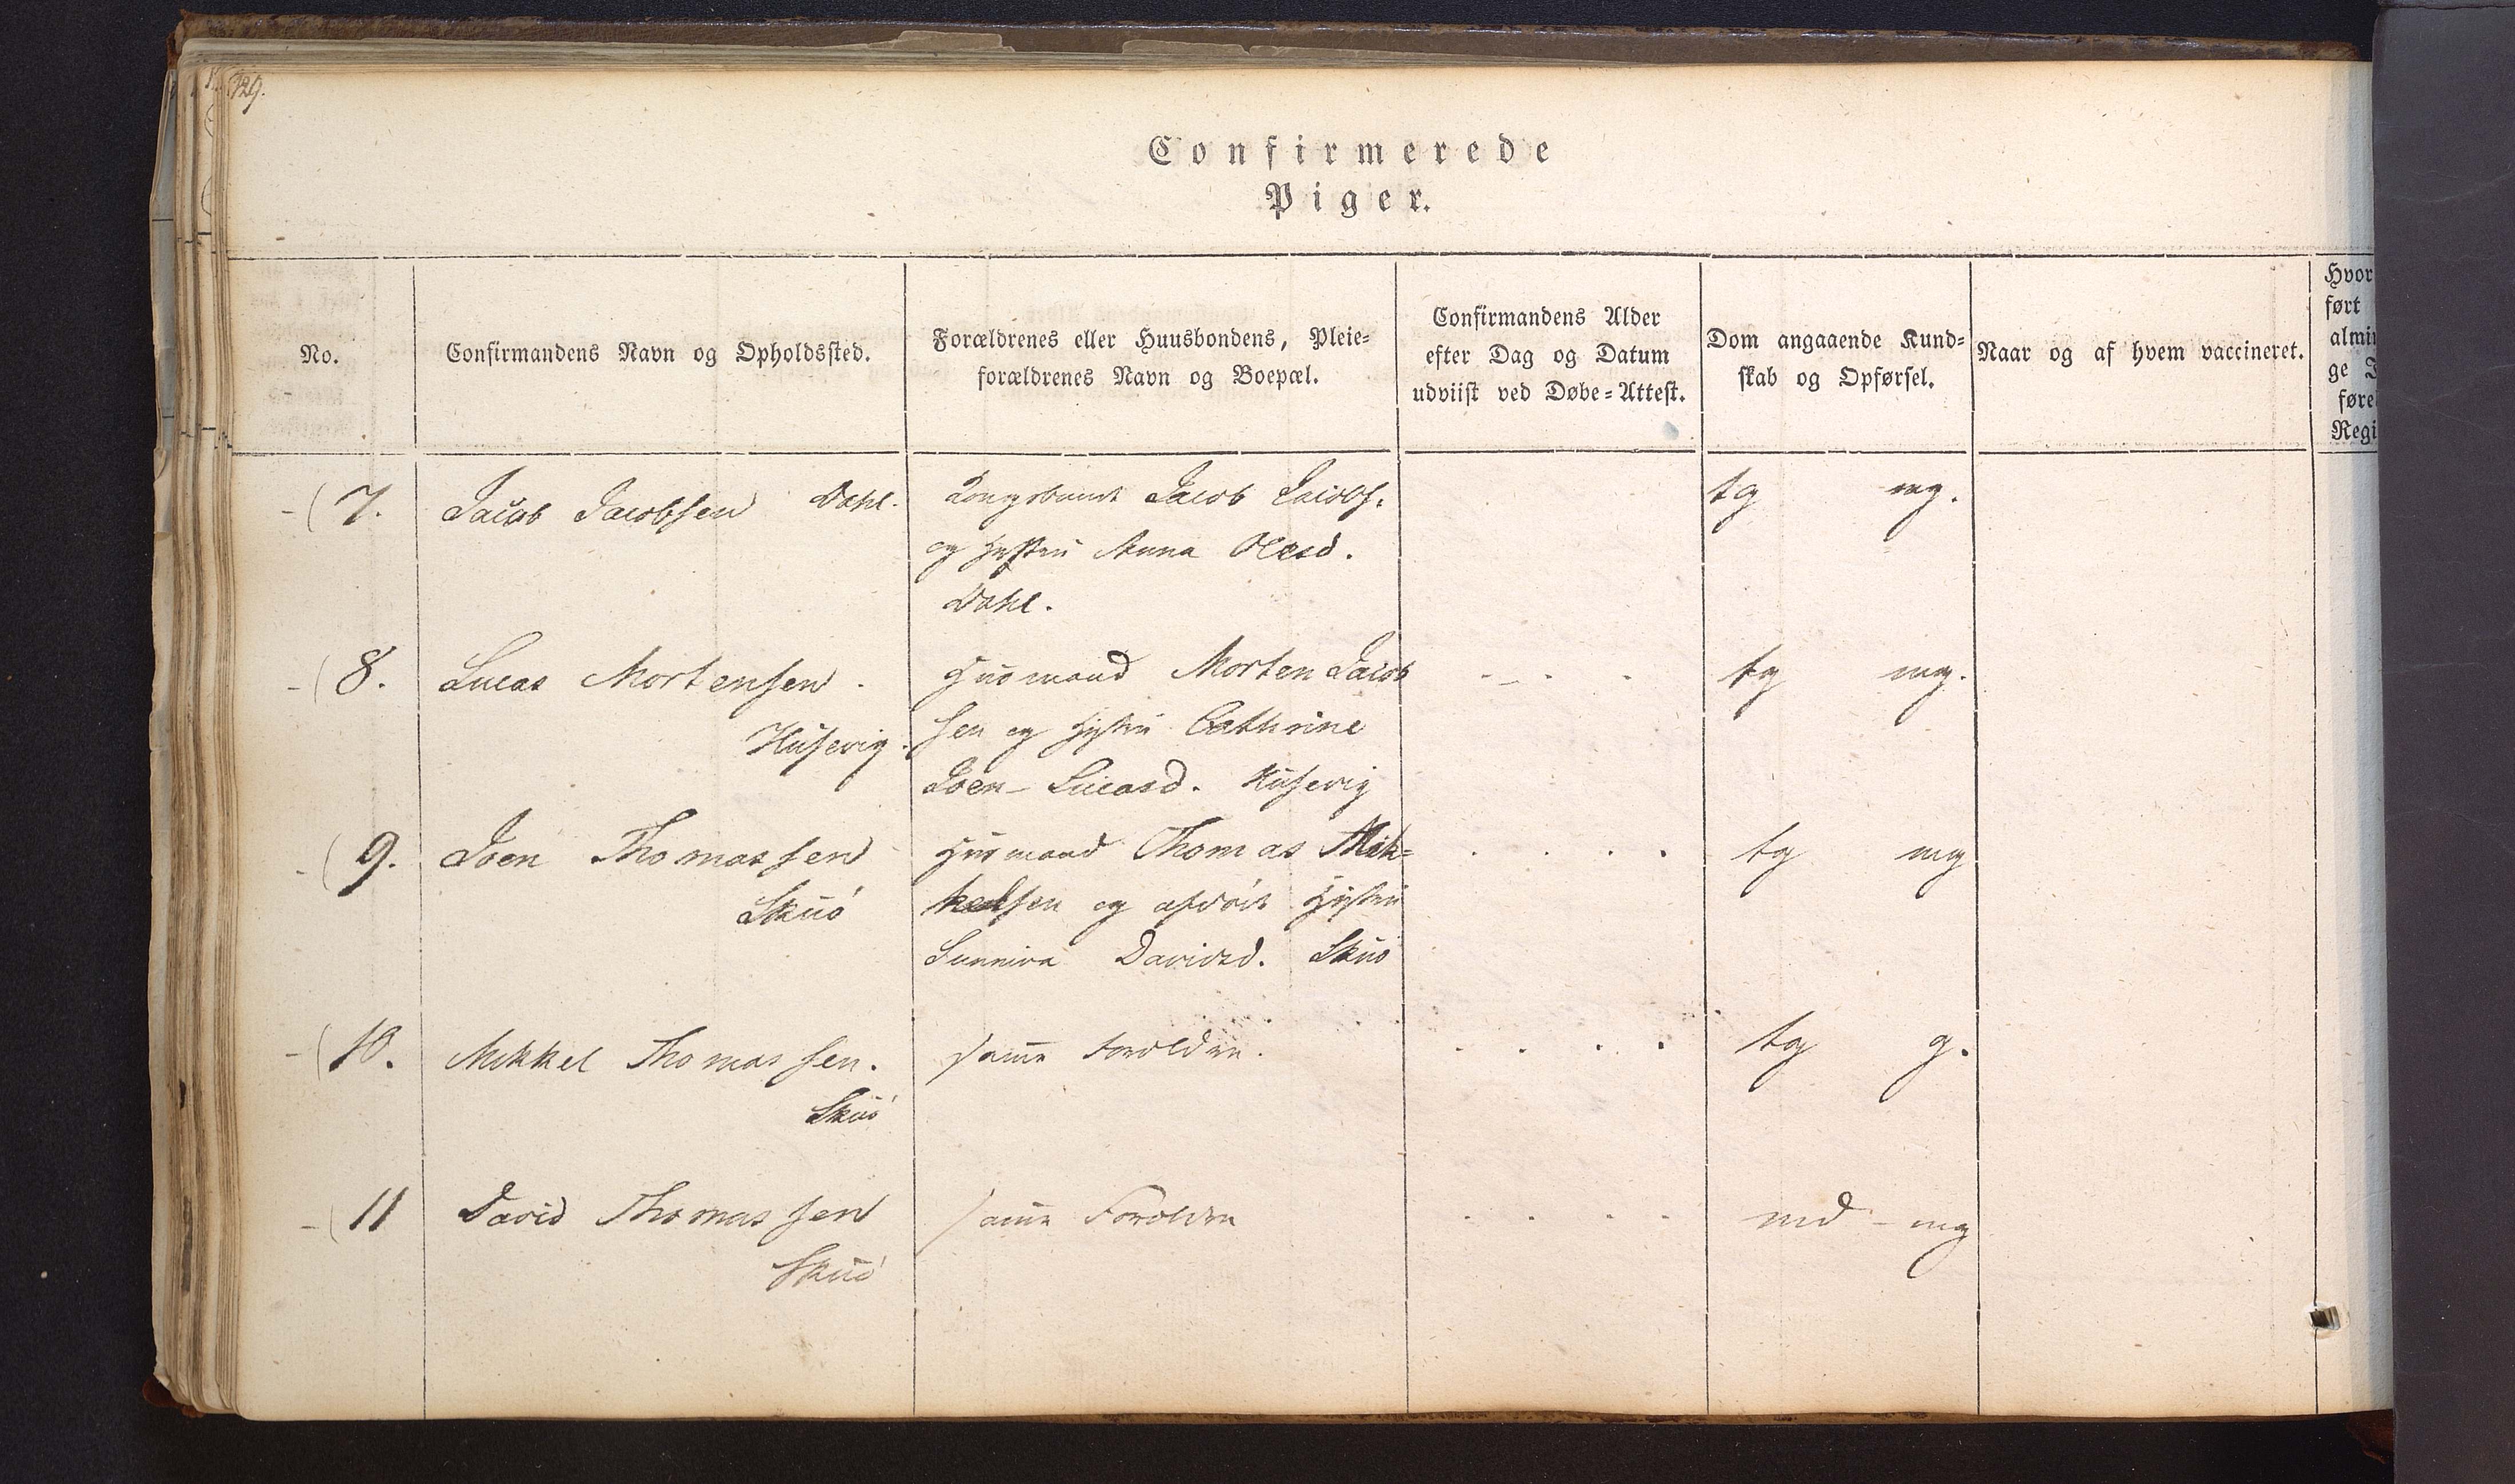 129.
Confirmerede
Piger.
No.
Confirmandens Navn og Opholdssted.
Forældrenes eller Huusbondens, Pleie=
forældrenes Navn og Boepæl.
Confirmandens Alder
efter Dag og Datum
udviist ved Døbe=Attest.
Dom angaaende Kund=
skab og Opførsel.
Naar og af hvem vaccineret.
Hvor
ført
almin
ge J
føre
Regi
7. Jacob Jacobsen Dahl. Kongsbonde Jacob Jacobs. tg mg.
og Hustru Anna Olesd.
Dahl.
8. Lucas Mortensen. Husmand Morten Jacob tg mg.
Husevig. sen og Hustru Cathrine
Joen-Lucasd. Husevig
9. Joen Thomassen Husmand Thomas Mik= tg mg
Skuó kelsen og afdøde Hustru
Sunniva Davidsd. Skuó
10. Mikkel Thomassen. samme Forældre. tg g.
Skuó
11 David Thomassen samme Forældre md - mg
Skuó